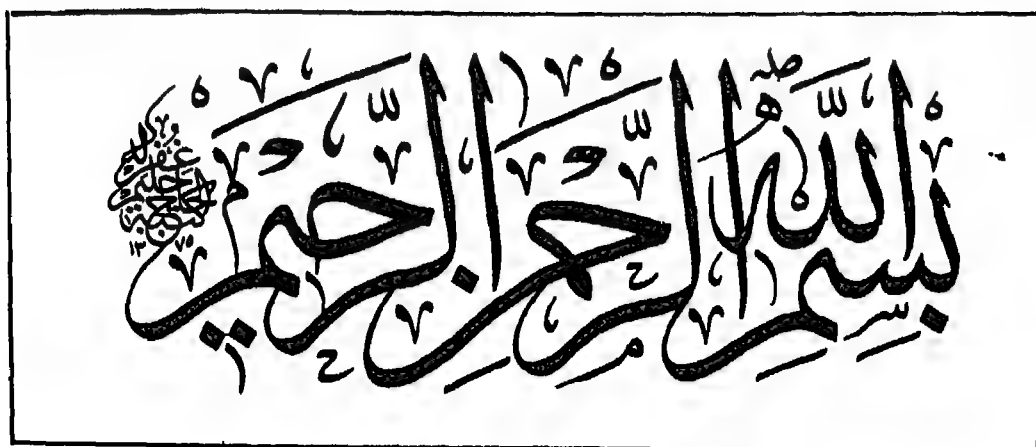 بِسْمِ اللّٰهِ الرَّحْمٰنِ الرَّحِيمِ
١٣٧٥